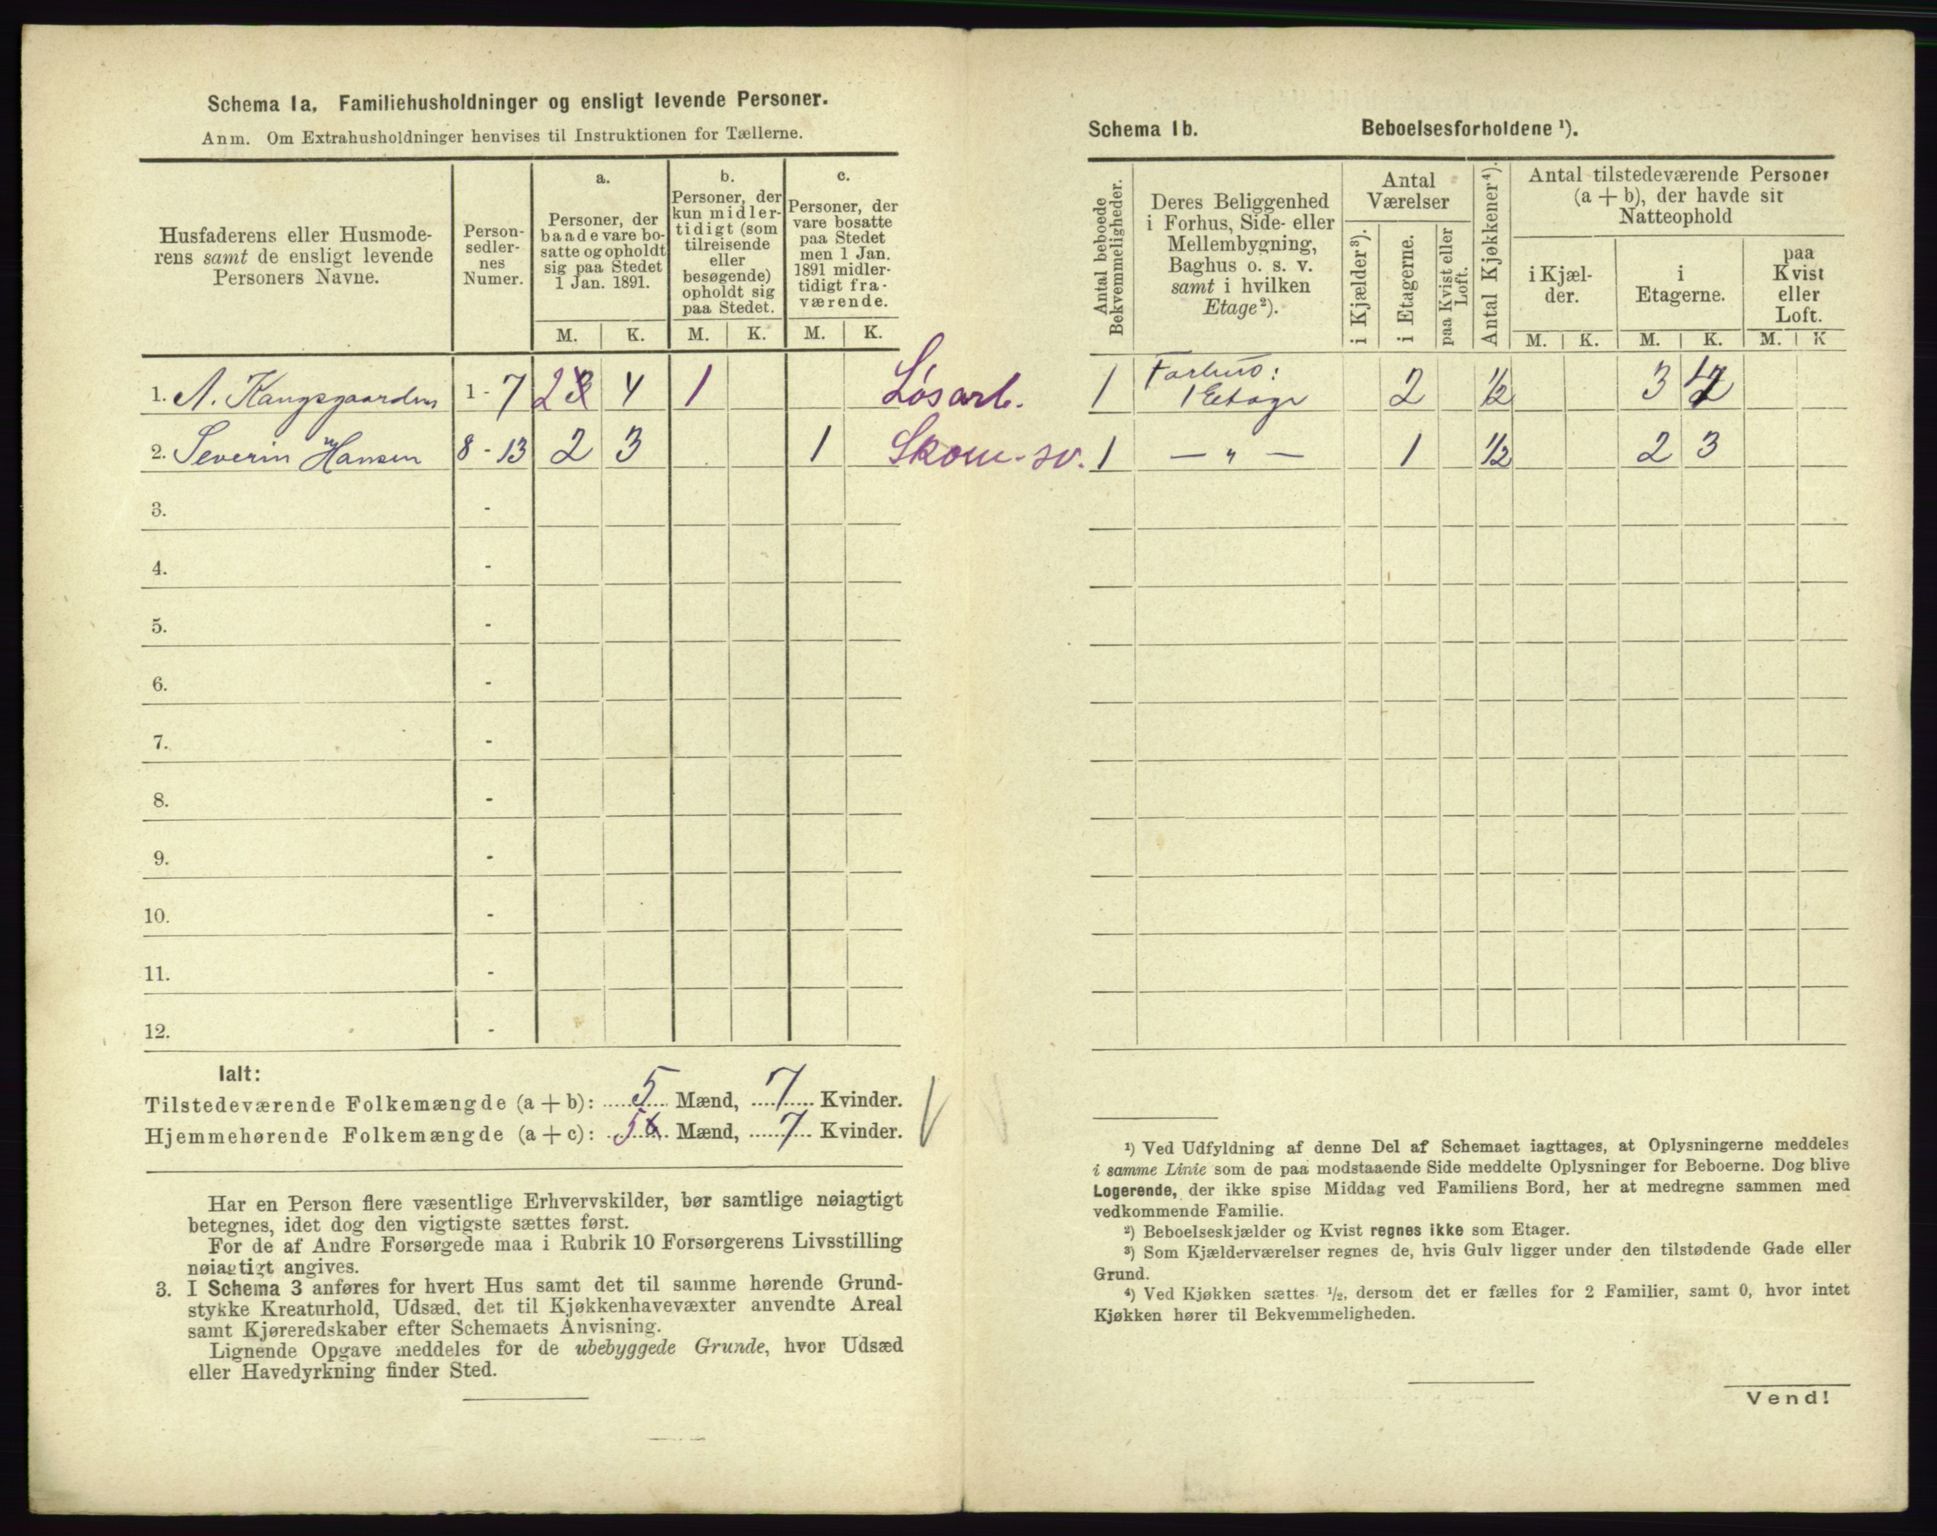 Schema 1a. Familiehusholdninger og ensligt levende Personer.
Anm. Om Extrahusholdninger henvises til Instruktionen for Tællerne.
Husfaderens eller Husmode-
rens samt de ensligt levende
Personers Navne.
Person-
sedler-
nes
Numer.
a.
Personer, der
baade vare bo-
satte og opholdt
sig paa Stedet
1 Jan. 1891.
b.
Personer, der
kun midler-
tidigt (som
tilreisende
eller
besøgende)
opholdt sig
paa Stedet.
c.
Personer, der
vare bosatte
paa Stedet
men 1 Jan.
1891 midler-
tidigt fra-
værende.
M. K. M. K. M. K.
1. A. 1 - 7 2 4 1 Løsarb.
2. Severin Hansen 8 - 13 2 3 1 Skom. sv.
3. -
4. -
5. -
6. -
7. -
8. -
9. -
10. -
11. -
12. -
Ialt:
Tilstedeværende Folkemængde (a + b): 5 Mænd, 7 Kvinder.
Hjemmehørende Folkemængde (a + c): 5 Mænd, 7 Kvinder.
Har en Person flere væsentlige Erhvervskilder, bør samtlige nøiagtigt
betegnes, idet dog den vigtigste sættes først.
For de af Andre Forsørgede maa i Rubrik 10 Forsørgerens Livsstilling
nøiagtigt angives.
3. I Schema 3 anføres for hvert Hus samt det til samme hørende Grund-
stykke Kreaturhold, Udsæd, det til Kjøkkenhavevæxter anvendte Areal
samt Kjøreredskaber efter Schemaets Anvisning.
Lignende Opgave meddeles for de ubebyggede Grunde, hvor Udsæd
eller Havedyrkning finder Sted.
Schema 1b. Beboelsesforholdene ¹).
Antal beboede
Bekvemmeligheder.
Deres Beliggenhed
i Forhus, Side- eller
Mellembygning,
Baghus o. s. v.
samt i hvilken
Etage²).
Antal
Værelser
i Kjælder³).
i Etagerne.
paa Kvist eller
Loft.
Antal Kjøkkener⁴).
Antal tilstedeværende Personer
(a + b), der havde sit
Natteophold
i Kjæl-
der.
i
Etagerne.
paa
Kvist
eller
Loft.
M. K. M. K. M. K
1 Forhus: 1 Etage 2 1/2 3 4
1 — " — 1 1/2 2 3
¹) Ved Udfyldning af denne Del af Schemaet iagttages, at Oplysningerne meddeles
i samme Linie som de paa modstaaende Side meddelte Oplysninger for Beboerne. Dog blive
Logerende, der ikke spise Middag ved Familiens Bord, her at medregne sammen med
vedkommende Familie.
²) Beboelseskjælder og Kvist regnes ikke som Etager.
³) Som Kjælderværelser regnes de, hvis Gulv ligger under den tilstødende Gade eller
Grund.
⁴) Ved Kjøkken sættes ½, dersom det er fælles for 2 Familier, samt 0, hvor intet
Kjøkken hører til Bekvemmeligheden.
Vend!